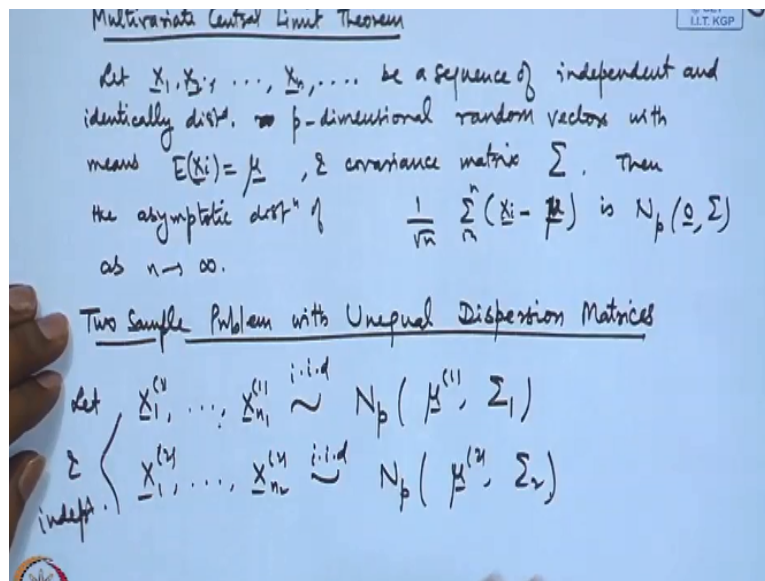 Multivariate Central Limit Theorem
I.I.T. KGP
Let X₁, X₂, ..., Xₙ, .... be a sequence of independent and
identically distd. p-dimensional random vectors with
means E(Xi) = μ , & covariance matrix Σ . Then
the asymptotic distⁿ of 1/√n Σⁿᵢ₌₁ (Xi - μ) is Nₚ(0, Σ)
as n→ ∞.
Two Sample Problem with Unequal Dispersion Matrices
Let X₁⁽¹⁾, ..., Xₙ₁⁽¹⁾ i.i.d ~ Nₚ( μ⁽¹⁾, Σ₁)
& X₁⁽²⁾, ..., Xₙ₂⁽²⁾ i.i.d ~ Nₚ( μ⁽²⁾, Σ₂)
indept.